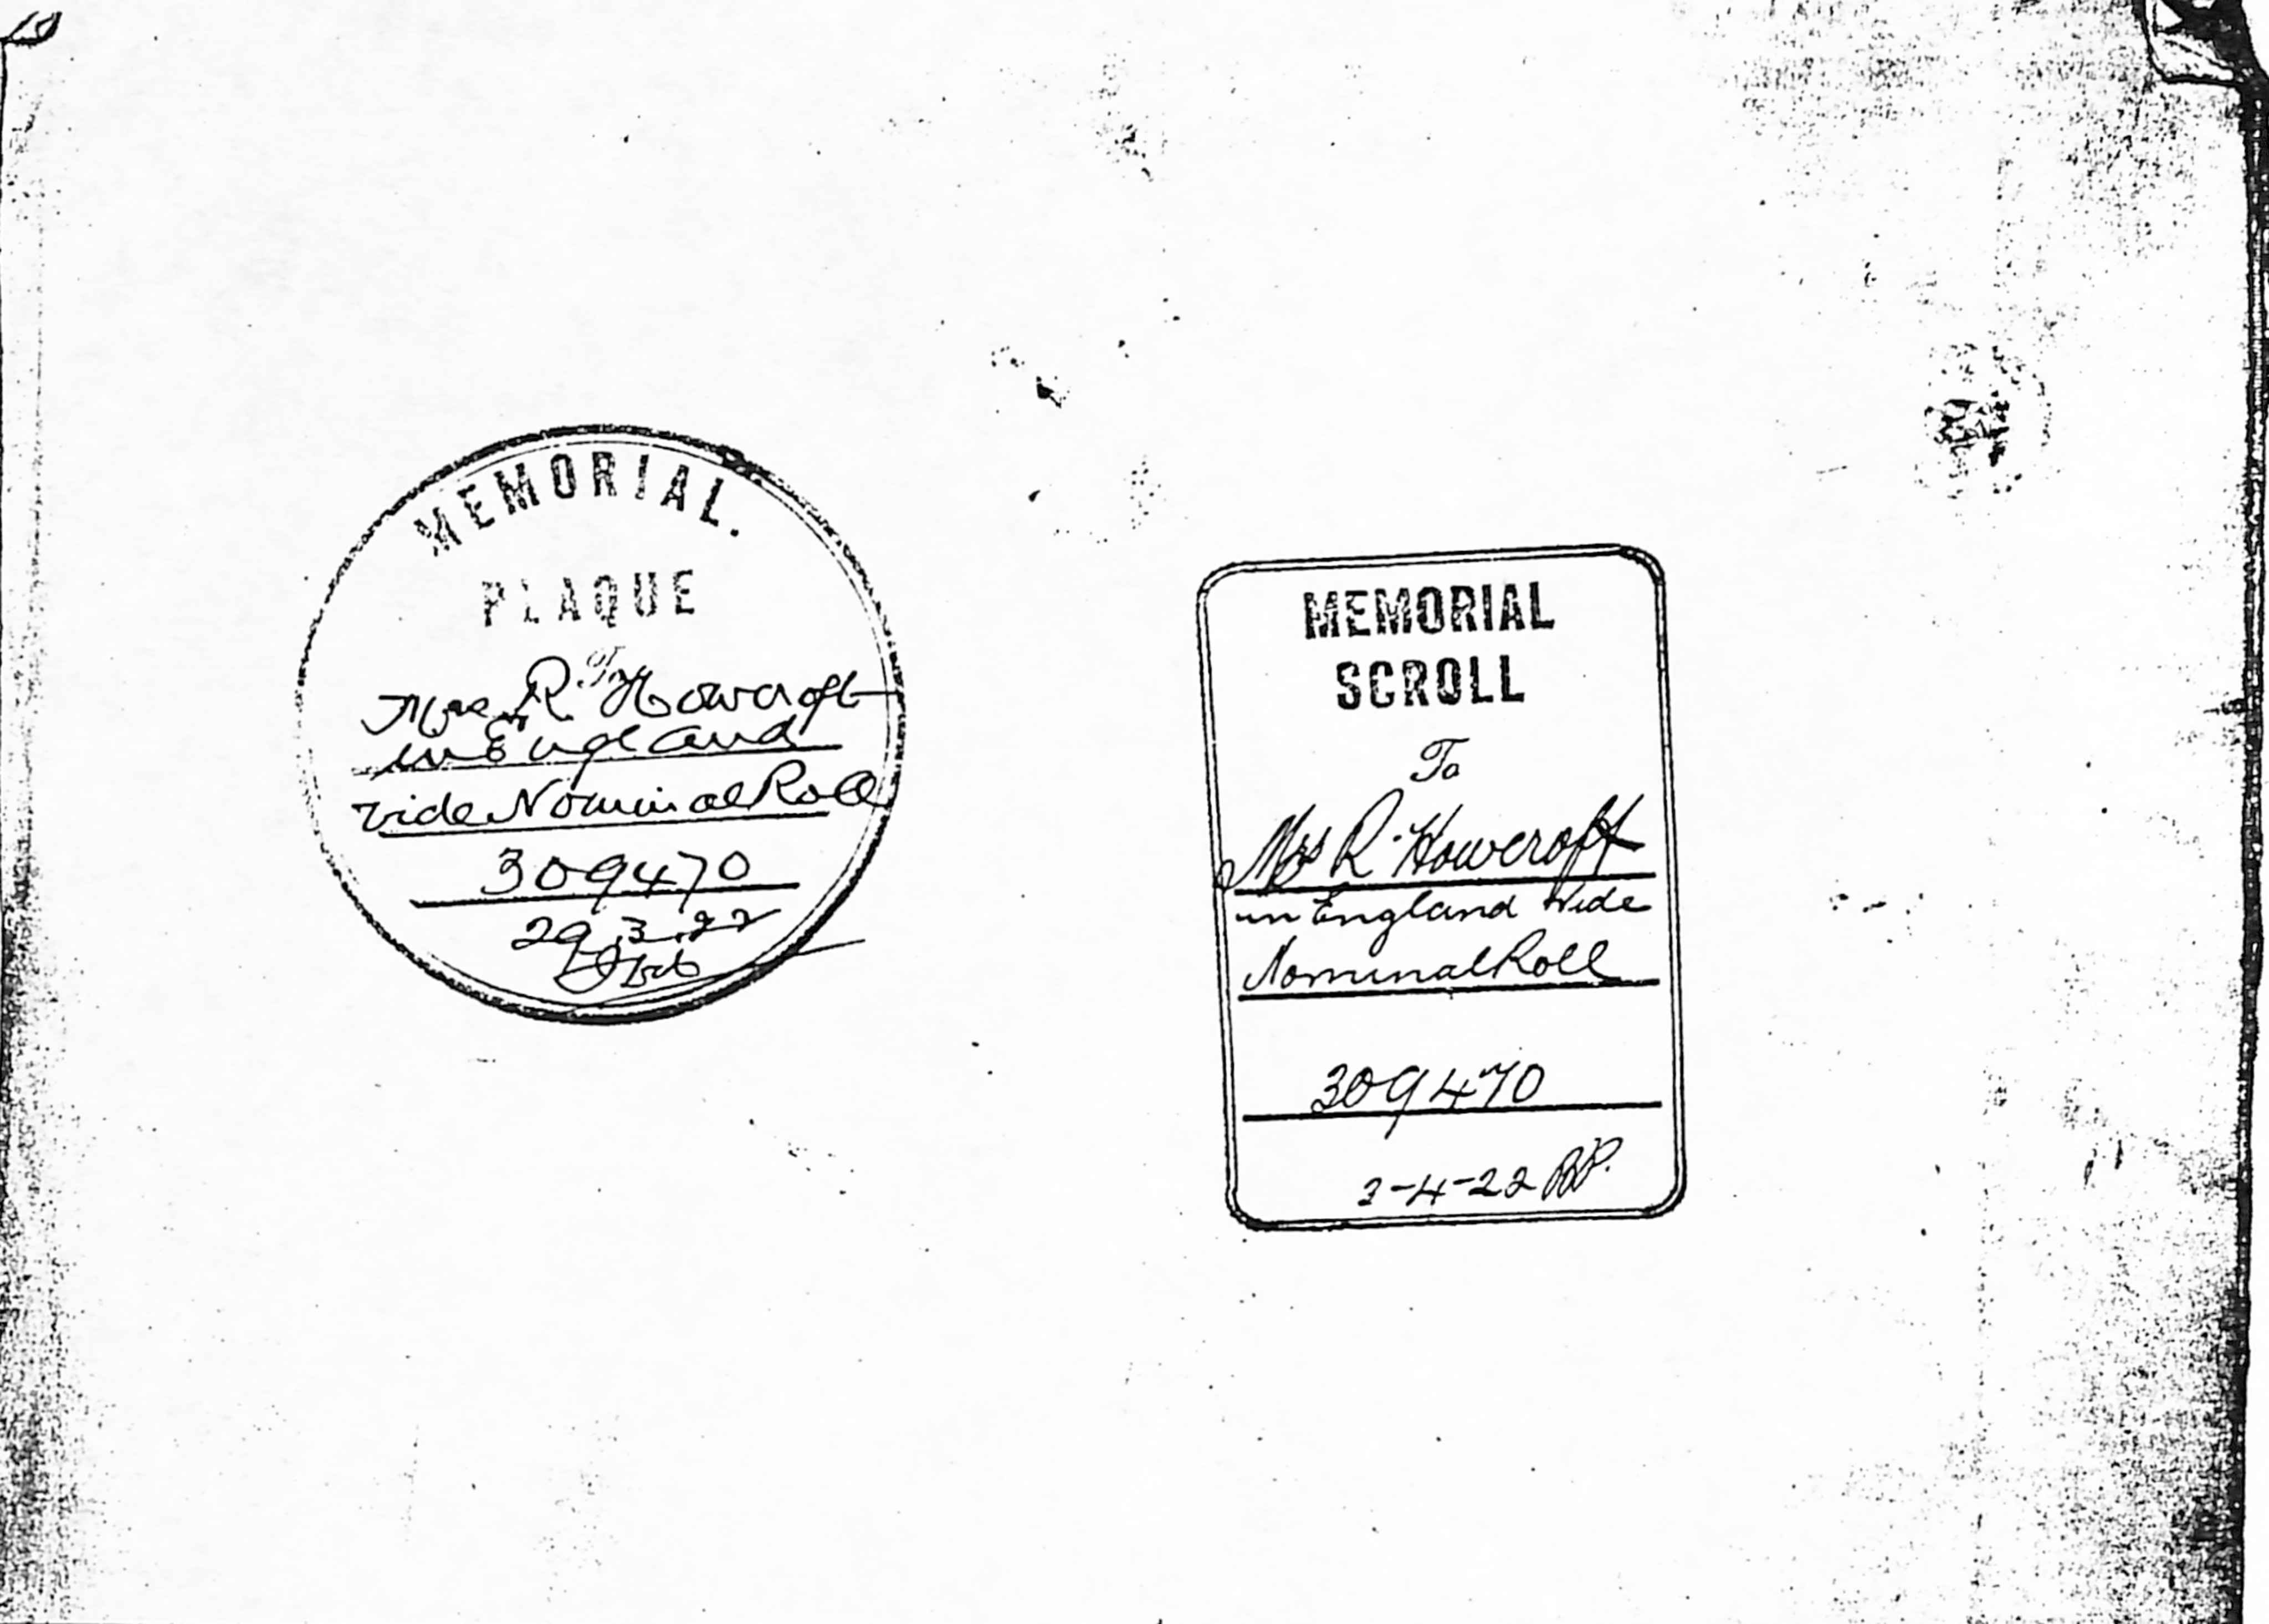 MEMORIAL.
PLAQUE
To
Mrs R. Howcroft
in England
vide Nominal Roll
309470
29.3.22
MEMORIAL
SCROLL
To
Mrs R. Howcroft
in England Vide
Nominal Roll
309470
3-4-22